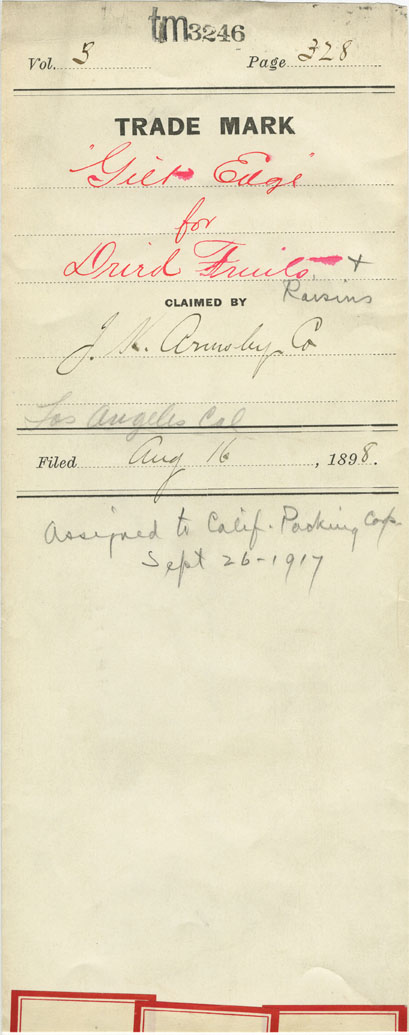 tm3246
Vol. 3 Page 328
TRADE MARK
"Gilt Edge"
for
Dried Fruits, +
Raisins
CLAIMED BY
J. K. Armsby Co
Los Angeles Cal
Filed Aug 16, 1898.
Assigned to Calif. Packing Corp.
Sept 26-1917